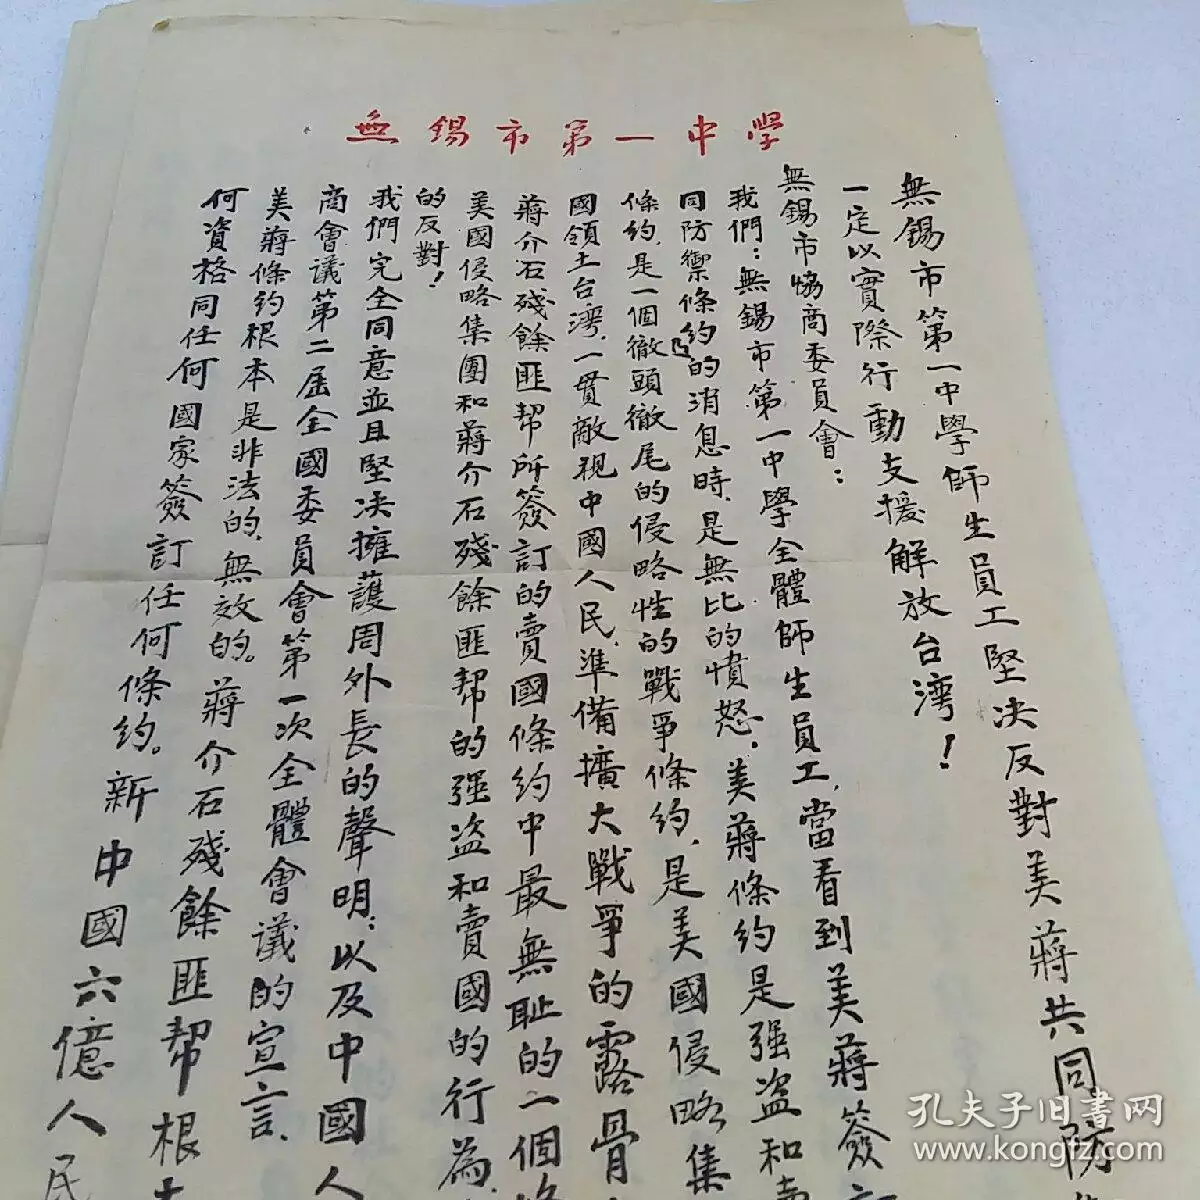 無錫市第一中学
無錫市第一中學師生員工堅决反對美蔣共同防
一定以實際行動支援解放台灣！
無錫市協商委員會：
我們：無錫市第一中學全體師生員工，當看到美蔣簽
同防禦條約的消息時，是無比的憤怒。美蔣條約是强盗和
條約，是一個徹頭徹尾的侵略性的戰爭條約，是美國侵略集
國領土台灣，一貫敵視中國人民，準備擴大戰爭的露骨
蔣介石殘餘匪帮所簽訂的賣國條約中最無耻的一個
美國侵略集團和蔣介石殘餘匪帮的强盗和賣國的行為
的反對！
我們完全同意並且堅决擁護周外長的聲明，以及中國人
商會議第二届全國委員會第一次全體會議的宣言，
美蔣條約根本是非法的，無效的。蔣介石殘餘匪帮根
何資格同任何國家簽訂任何條約。新中國六億人民
孔夫子旧書网
www.kongfz.com